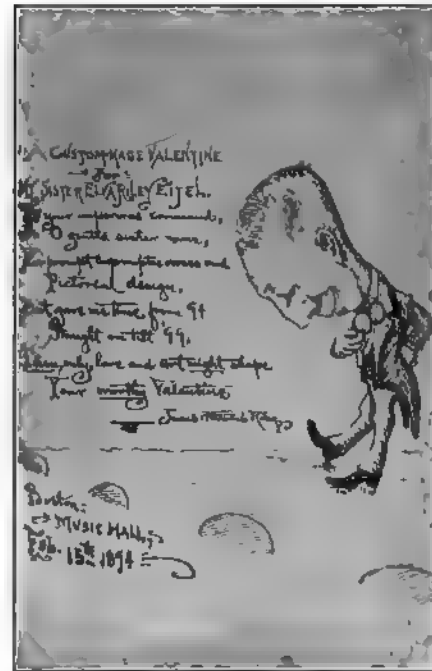 A CUSTOM-MADE VALENTINE
— For —
MY SISTER ELVA RILEY EITEL.
your command,
O gentle sister mine,
prompt impromptu and
Pictorial design,
gave me time from 94
Straight on till '99,
only love and art might shape
Your worthy Valentine
— James Whitcomb Riley
Boston:
MUSIC HALL,
Feb. 15th 1894